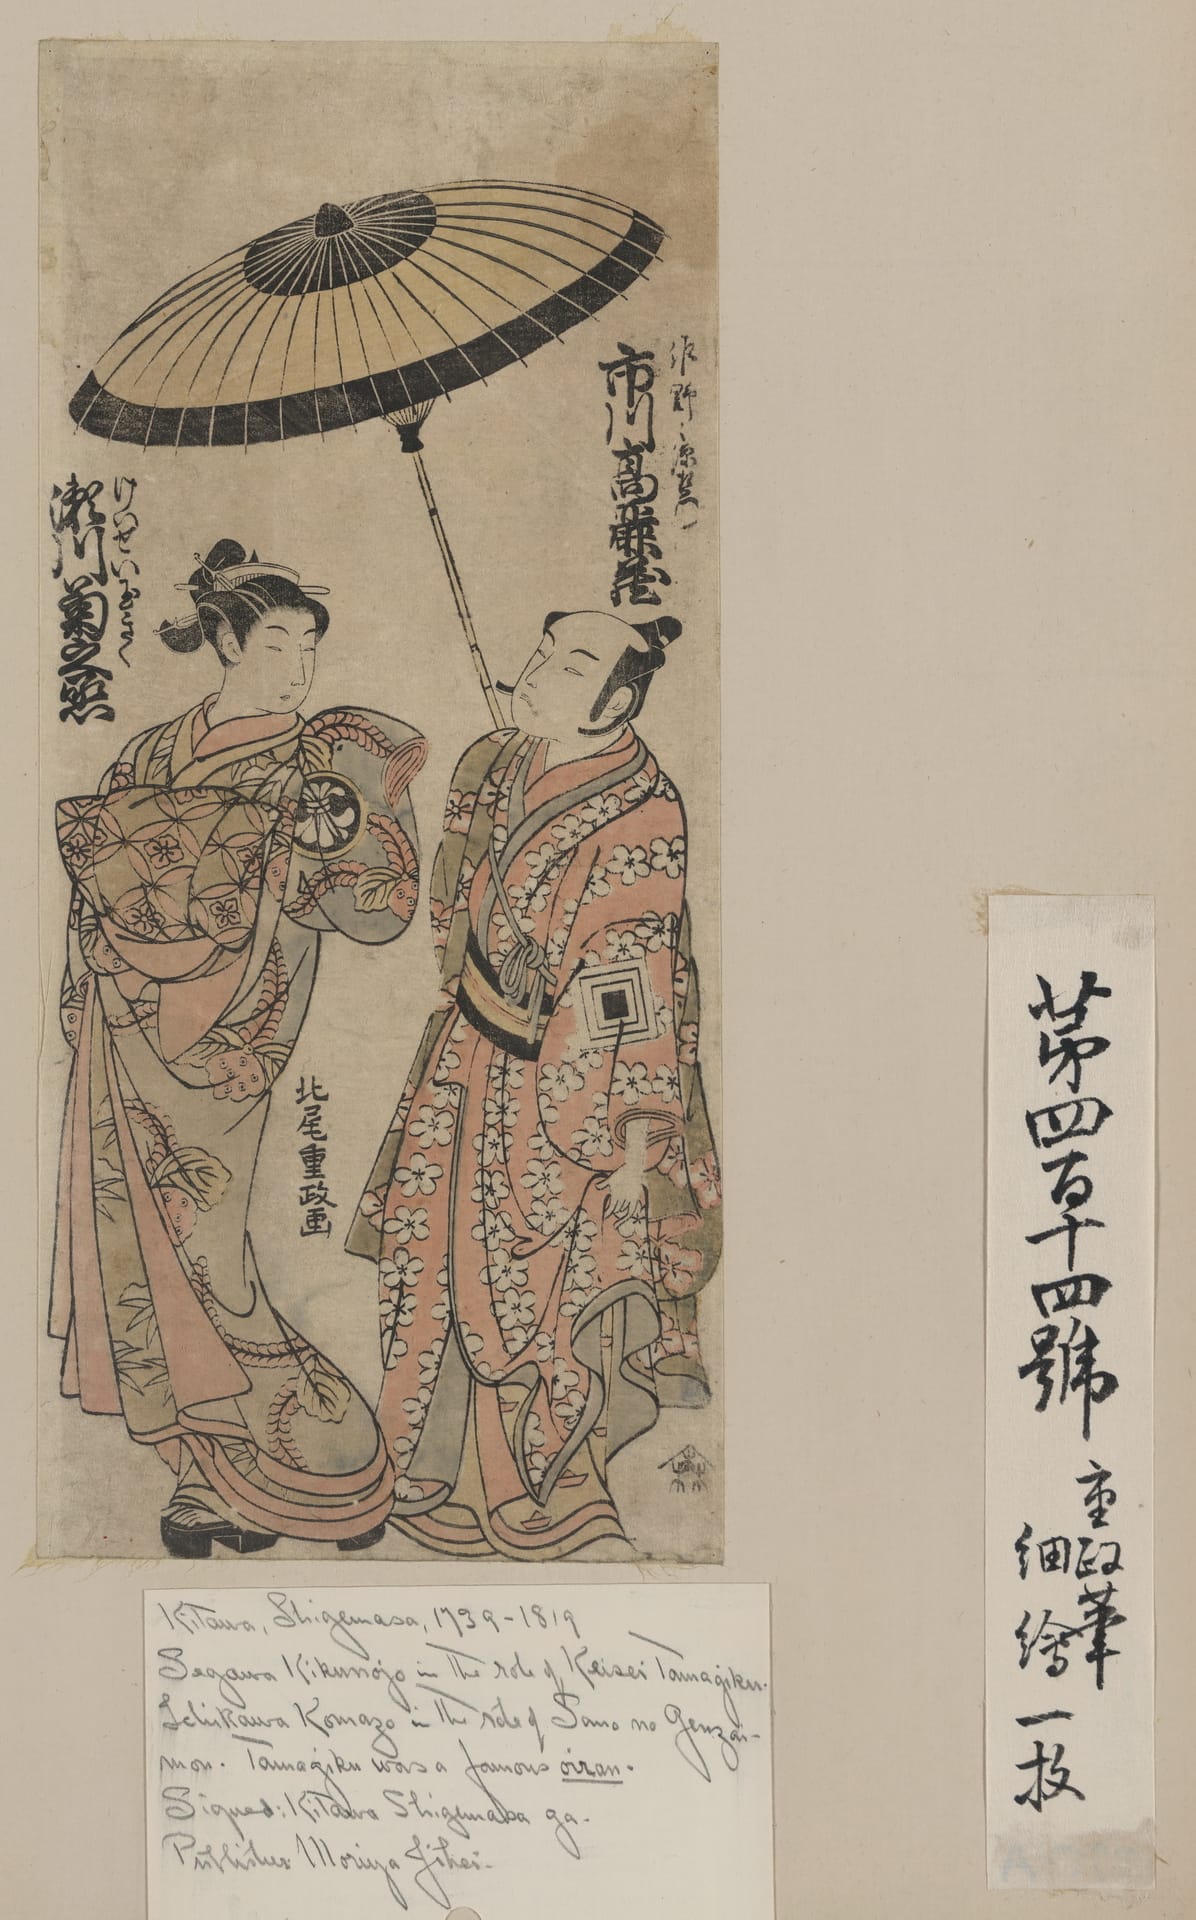 佐野ノ源左衛門
市川高麻蔵
けいせい玉きく
瀬川菊之丞
北尾重政画
苐四百十四號
重政筆
細繪一枚
Kitawo, Shigemasa, 1739-1819
Segawa Kikunojo in the role of Keisei Tamagiku.
Ichikawa Komazo in the rôle of Sano no Genzai-
mon. Tamagiku was a famous oiran.
Signed: Kitawo Shigemasa ga.
Publisher Moriya Jihei.